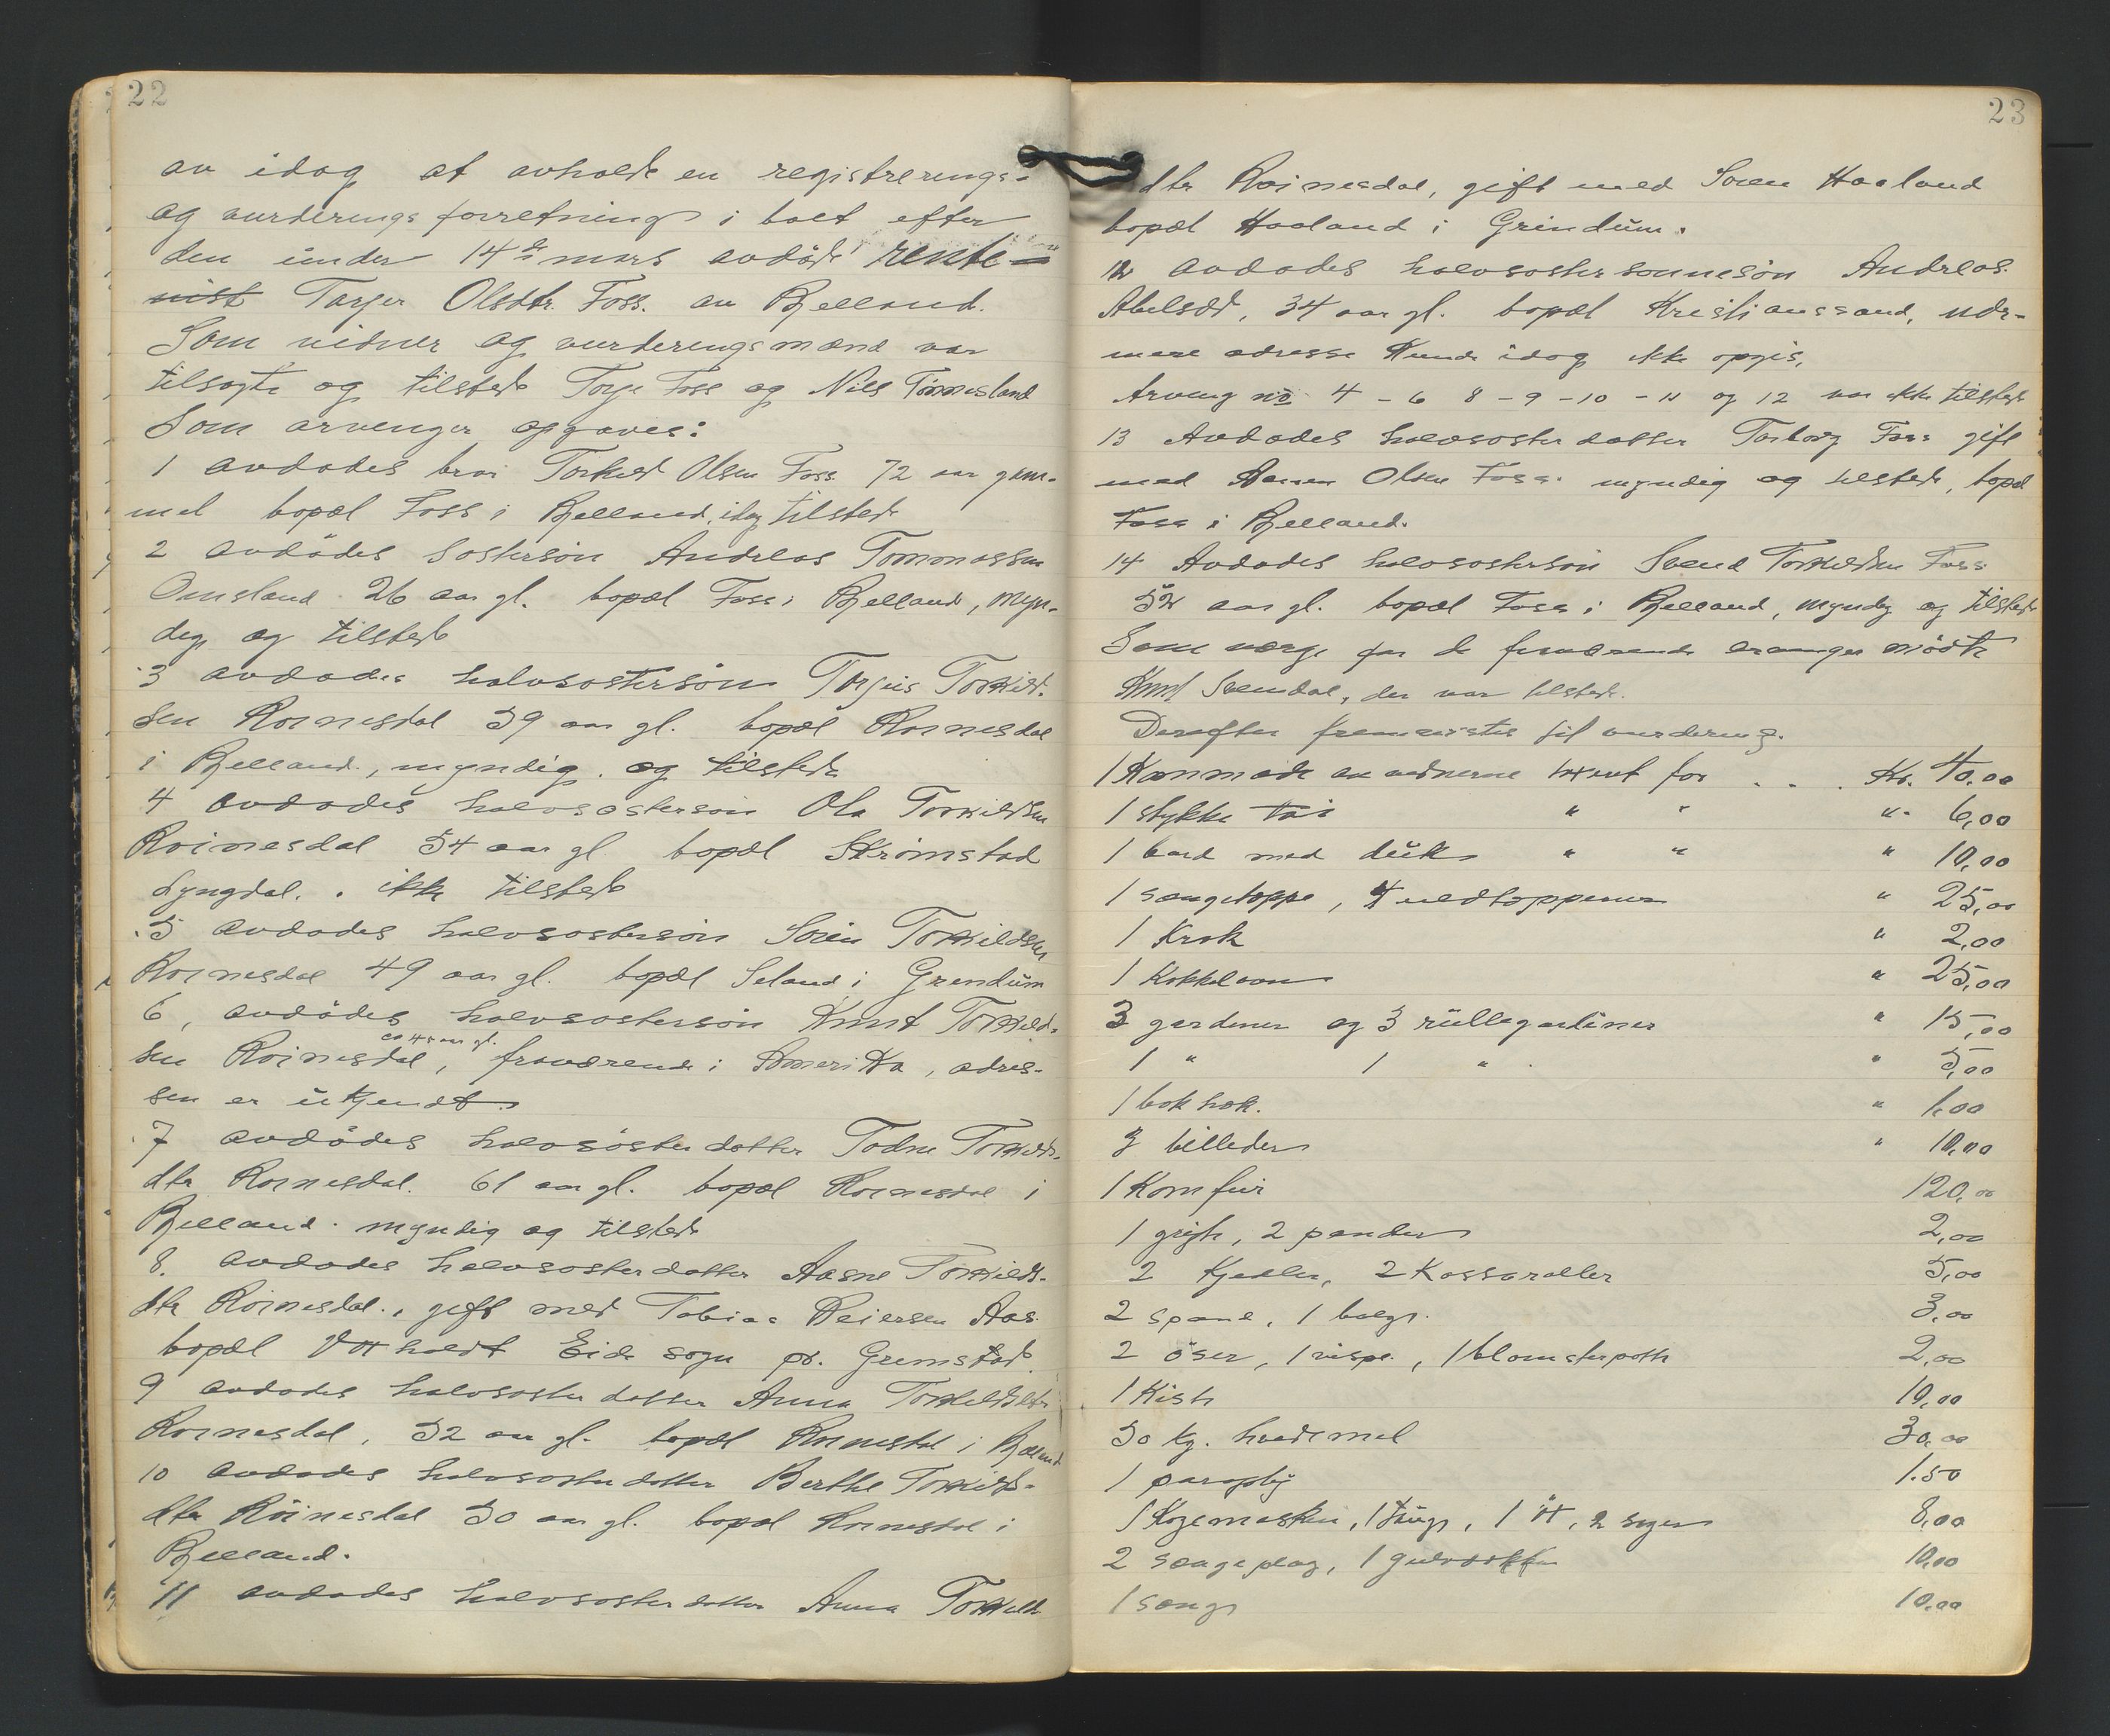 22
av idag at avholde en registrerings-
og vurderingsforretning i boet efter
den under 14de mars avdöde rente-
nist Tarjer Olsdtr. Foss. av Bjelland.
Som vidner og vurderingsmænd var
tilsagte og tilstede Torje Foss og Nils Tönnesland
Som arvenger opgaves:
1 avdødes bror Torkild Olsen Foss 72 aar gam-
mel bopæl Foss i Bjelland, idag tilstede
2 avdödes søstersön Andreas Tommassen
Omsland 26 aar gl. bopæl Foss i Bjelland, myn-
dig og tilstede
3 avdødes halvsøstersön Torjus Torkild-
sen Roinesdal 39 aar gl. bopæl Roinesdal
i Bjelland, myndig og tilstede
4 avdødes halvsøstersön Ola Torkildsen
Roinesdal 54 aar gl bopæl Skrømstad
Lyngdal. ikke tilstede
5 avdødes halvsøstersön Sören Torkildsen
Roinesdal 49 aar gl. bopæl Seland i Grendum
6, avdödes halvsøstersön Knut Torkild-
ca 45 aar gl.
sen Roinesdal, fraværende i Amerika, adres-
sen er ukjendt.
7 avdödes halvsøsterdatter Todne Torkilds-
dtr Roinesdal. 61 aar gl. bopæl Roinesdal i
Bjelland. myndig og tilstede
8. avdødes halvsøsterdatter Aasne Torkilds-
dtr Roinesdal, gift med Tobias Reiersen Aas
bopæl Eide sogn pr. Grimstad.
9 avdødes halvsøsterdatter Anna Torkildsdtr
Roinesdal, 32 aar gl. bopæl Roinesdal i Bjelland
10 avdødes halvsøsterdatter Berthe Torkilds-
dtr Röinesdal 30 aar gl. bopæl Roinesdal i
Bjelland.
11 avdødes halvsøsterdatter Anna Torkilds
23
dtr Roinesdal, gift med Søren Haaland
bopæl Haaland i Grindum.
12 avdødes halvsøstersønnesön Andreas
Abelsæt, 34 aar gl. bopæl Kristianssand, nær-
mere adresse kunde idag ikke opgis,
Arving no 4 - 6 8 - 9 - 10 - 11 og 12 var ikke tilstede
13 Avdødes halvsøsterdatter Torborg Foss gift
med Olsen Foss. myndig og tilstede, bopæl
Foss i Bjelland.
14 Avdødes halvsøstersön Svend Torkildsen Foss
52 aar gl. bopæl Foss i Bjelland, myndig og tilstede
Som værge for de fraværende arvinger mödte
Knut Svendal, der var tilstede.
Derefter fremvistes til vurdering.
1 Kommode av vidnerne taxert for . . . Kr. 40,00
1 stykke töi " " " 6,00
1 bord med duk " " " 10,00
1 sængetæppe, 4 uldtæpper " 25,00
1 Krak " 2,00
1 Kakkelovn " 25,00
3 gardener og 3 rullegardiner " 15,00
1 " 1 " " 5,00
1 bokhok. " 1,00
3 billeder " 10,00
1 Komfur 120,00
1 gryte, 2 pander 2,00
2 Kjedler, 2 Kasseroller 5,00
2 spand, 1 balge. 3,00
2 öser, 1 vispe, 1 blomsterpotte 2,00
1 Kiste 10,00
50 kg. hvedemel 30,00
1 paraply 1.50
1 Kogemaskin, 1 tang, 1 , 2 sager 8,00
2 sængeplag, 1 10,00
1 sæng 10,00